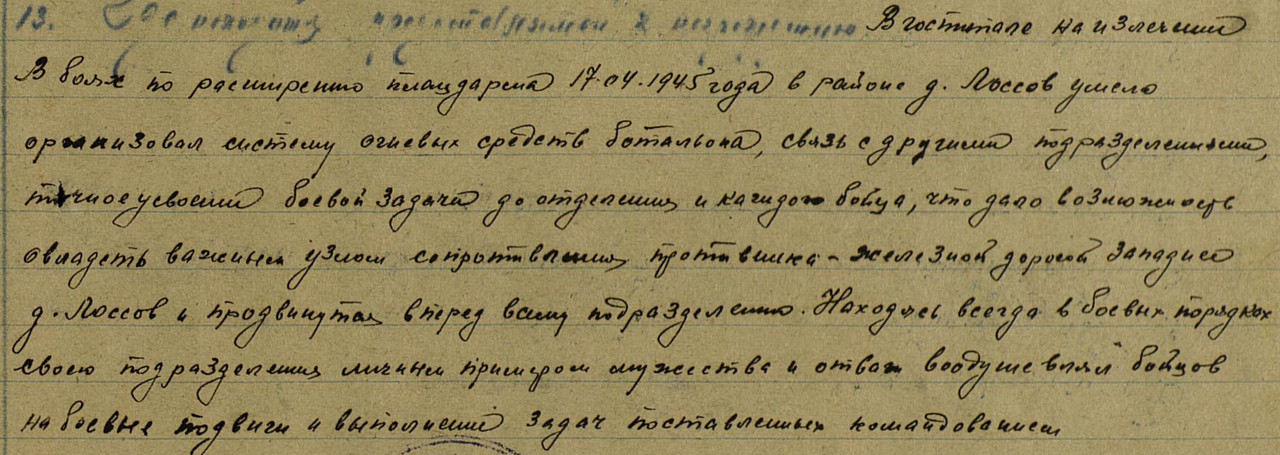 13. представляемой к В госпитале на излечении
В боях по расширению плацдарма 17.04.1945 года в районе д. Лоссов умело
организовал систему огневых средств батальона, связь с другими подразделениями,
точное усвоений боевой задачи до отделения и каждого бойца, что дало возможность
овладеть важным узлом сопротивления противника - железной дорогой западнее
д. Лоссов и продвинутся вперед всему подразделению. Находясь всегда в боевых порядках
своего подразделения личным примером мужества и отваги воодушевлял бойцов
на боевые подвиги и выполнений задач поставленных командованием